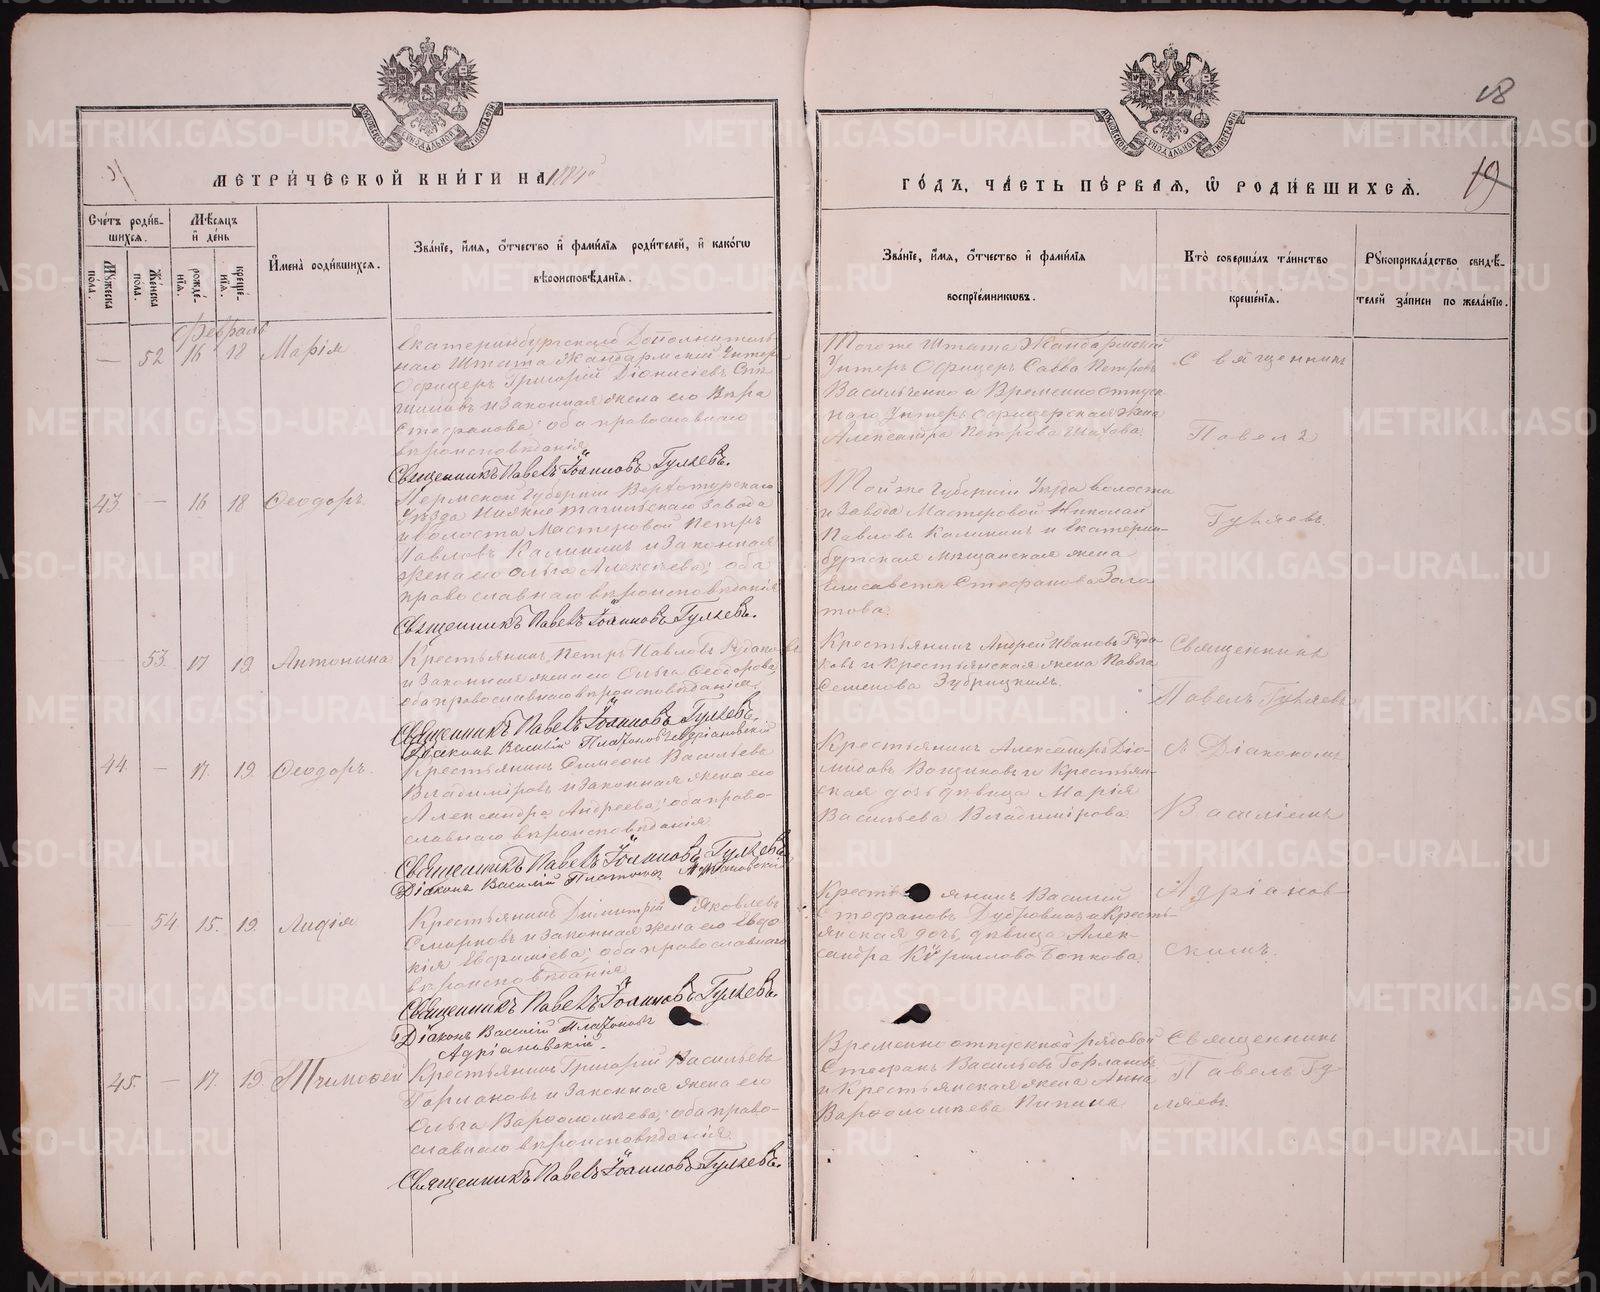 18
19
МЕТРИ́ЧЕСКОЙ КНИ́ГИ НА 1884
ГО́ДЪ, ЧА́СТЬ ПЕ́РВАЯ, Ѡ РОДИ́ВШИХСЯ.
Сче́тъ роди́в-
шихся.
Мѣ́сяцъ
и де́нь
Мꙋ́жеска пола.
Же́нска пола.
рожде́-
нїя.
креще́-
нїя.
И́мена роди́вшихся.
Зва́нїе, и́мя, о́тчество и фами́лїя роди́телей, и како́гѡ
вѣроисповѣ́данїя.
Зва́нїе, и́мя, о́тчество и фами́лїя
воспрїе́мникѡвъ.
Кто̀ соверша́лъ та́инство
креще́нїя.
Рꙋкоприкла́дство свидѣ́-
телей за́писи по жела́нїю.
Февраль
— 52 16 18 Марія
Екатеринбургскаго Дополнитель
наго Штата Жандармский Унтеръ
Офицеръ Григорій Діонисіевъ
и законная жена его Вѣра
Стефанова; оба православнаго
вѣроисповѣданія.
Священникъ Павелъ Іоанновъ Гуляевъ.
Того же Штата Жандармской
Унтеръ Офицеръ Савва Петровъ
Васильченко и Временноотпуск
наго Унтеръ офицерская жена
Александра Петрова
Священникъ
Павелъ
Гуляевъ.
43 — 16 18 Ѳеодоръ
Пермской Губерніи Верхотурскаго
Уѣзда Нижне Тагильскаго Завода
и волости Мастеровой Петръ
Павловъ Калининъ и законная
жена его Ольга Алексѣева; оба
православнаго вѣроисповѣданія
Священникъ Павелъ Іоанновъ Гуляевъ.
Той же Губерніи Уѣзда волости
и Завода Мастеровой Николай
Павловъ Калининъ и Екатерин-
бургская Мѣщанская жена
Елисавета Стефанова Золо
това.
— 53 17 19 Антонина
Крестьянинъ Петръ Павловъ Рудаковъ
и законная жена его Ольга Ѳеодорова;
оба православнаго вѣроисповѣданія.
Священникъ Павелъ Іоанновъ Гуляевъ.
Діаконъ Василій Платоновъ Адріановскій
Крестьянинъ Андрей Ивановъ Руда
ковъ и Крестьянская жена Павла
Семенова Зубрицкихъ.
Священникъ
Павелъ Гуляевъ
44 — 17. 19. Ѳеодоръ.
Крестьянинъ Симеонъ Васильевъ
Владиміровъ и законная жена его
Александра Андреева; оба право-
славнаго вѣроисповѣданія
Священникъ Павелъ Іоанновъ Гуляевъ
Діаконъ Василій Платоновъ Адріановскій
Крестьянинъ Александръ Діо-
мидовъ и Крестьян-
ская дочь дѣвица Марія
Васильева Владимірова
съ Діакономъ
Василіемъ
Адріанов-
скимъ.
— 54 15. 19. Лидія
Крестьянинъ Димитрій Яковлевъ
Смирновъ и законная жена его Евдо
кія Евфиміева; оба православнаго
вѣроисповѣданія
Священникъ Павелъ Іоанновъ Гуляевъ.
Діаконъ Василій Платоновъ
Адріановскій.
Крестьянинъ Василій
Стефановъ Дубровинъ и Кресть-
янская дочь, дѣвица Алек-
сандра Кѵриллова
45. — 17. 19 Тимоѳей
Крестьянинъ Григорій Васильевъ
Горлановъ и законная жена его
Ольга Варѳоломѣева; оба право-
славнаго вѣроисповѣданія.
Священникъ Павелъ Іоанновъ Гуляевъ.
Временноотпускной рядовой
Стефанъ Васильевъ Горлановъ
и Крестьянская жена Анна
Варѳоломѣева
Священникъ
Павелъ Гу-
ляевъ.
METRIKI.GASO-URAL.RU